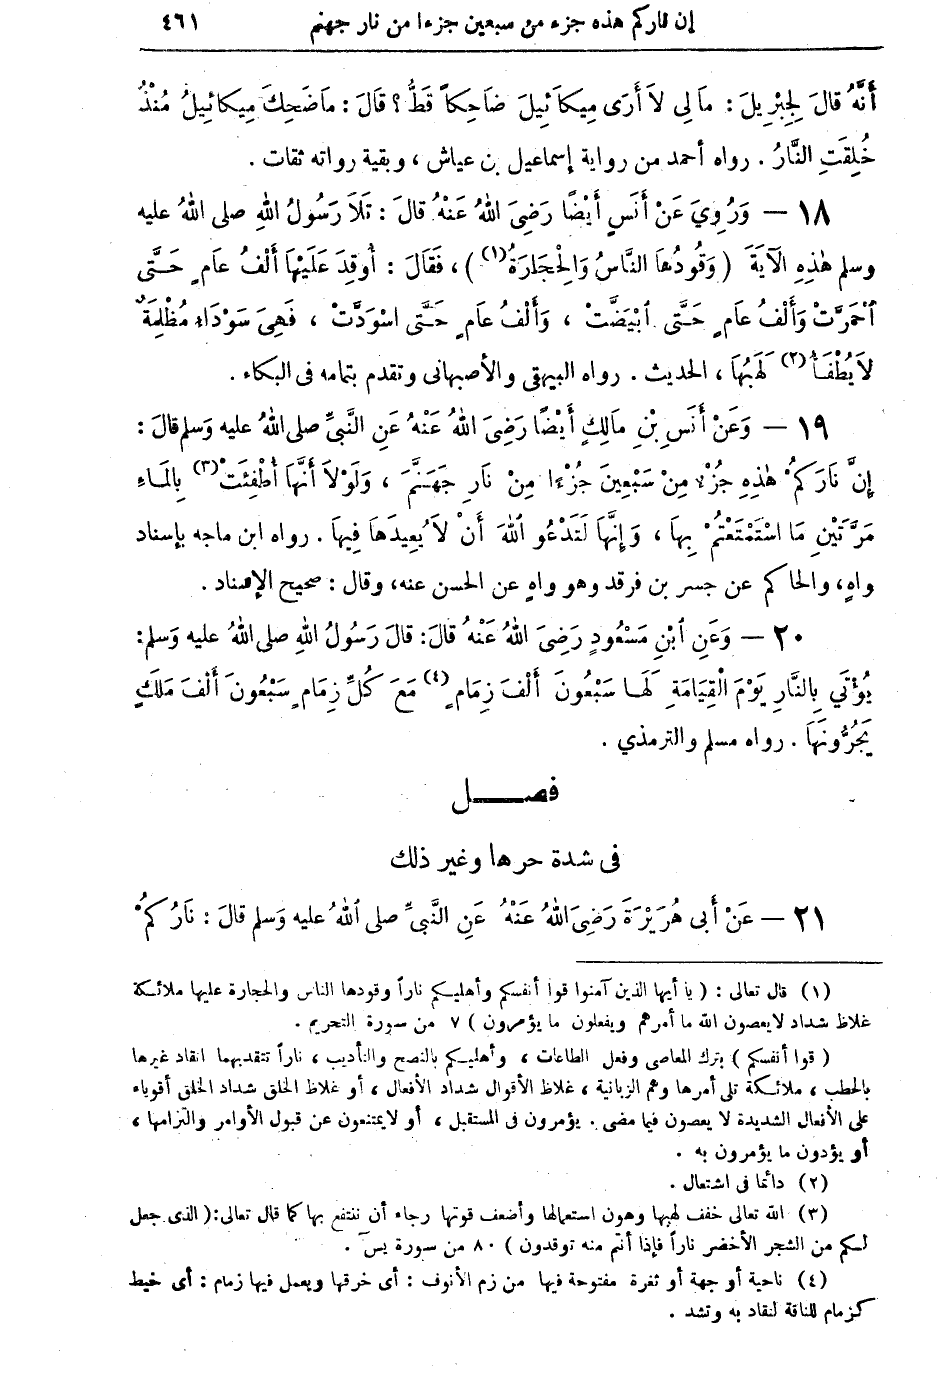 إن ناركم هذه جزء من سبعين جزءا من نار جهنم ٤٦١
أَنَّهُ قالَ لِجِبْرِيلَ : مَا لِى لاَ أَرَى مِيكاَئِيلَ ضَاحِكاً قَطُّ ؟ قالَ : مَاضَحِكَ مِيكائِيلُ مُنْذُ
خُلِقَتِ النَّارُ . رواه أحمد من رواية إسماعيل بن عياش ، وبقية رواته ثقات .
١٨ — وَرُوِيَ عَنْ أَنَسٍ أَيْضًا رَضِىَ اللهُ عَنْهُ قالَ : تَلاَ رَسُولُ اللهِ صلى اللهُ عليه
وسلم هٰذِهِ الآيَةَ ( وَقُودُهَا النَّاسُ وَالْحِجَارَةُ (١) ) ، فَقَالَ : أُوقِدَ عَلَيْهَا أَلْفُ عَامٍ حَتَّى
ٱحْمَرَّتْ وَأَلْفُ عامٍ حَتَّى ٱبْيَضَّتْ ، وَأَلْفُ عامٍ حَتَّى اسْوَدَّتْ ، فَهِىَ سَوْدَاء مُظْلِمَةٌ
لاَ يُطْفَأُ (٢) لَهَبُهَا ، الحديث . رواه البيهقى والأصبهانى وتقدم بتمامه فى البكاء .
١٩ — وَعَنْ أَنَسِ بْنِ مَالِكٍ أَيْضًا رَضِىَ اللهُ عَنْهُ عَنِ النَّبىِّ صلى اللهُ عليه وَسلم قالَ :
إِنَّ نَارَكُمْ هٰذِهِ جُزْءٌ مِنْ سَبْعِينَ جُزْءًا مِنْ نَارِ جَهَنَّمَ ، وَلَوْلاَ أَنَّهَا أُطْفِئَتْ (٣) بِالْمَاءِ
مَرَّتَيْنِ مَا اسْتَمْتَعْتُمْ بِهاَ ، وَإِنَّهَا لَتَدْعُو ٱللهَ أَنْ لاَ يُعِيدَهَا فِيهَا . رواه ابن ماجه بإسناد
واهٍ، والحاكم عن جسر بن فرقد وهو واهٍ عن الحسن عنه، وقال : صحيح الإسناد .
٢٠ — وَعَنِ ٱبْنِ مَسْعُودٍ رَضِىَ اللهُ عَنْهُ قالَ: قالَ رَسُولُ اللهِ صلى اللهُ عليه وَسلم:
يُؤْتَي بِالنَّارِ يَوْمَ الْقِيَامَةِ لَهَا سَبْعُونَ أَلْفَ زِمَامٍ (٤) مَعَ كُلِّ زِمَامٍ سَبْعُونَ أَلْفَ مَلَكٍ
يَجُرُّونَهَا . رواه مسلم والترمذي .
فصـــل
فى شدة حرها وغير ذلك
٢١ — عَنْ أَبى هُرَيْرَةَ رَضِىَ اللهُ عَنْهُ عَنِ النَّبىِّ صلى ٱللهُ عليه وَسلم قالَ : نَارُكُمْ
(١) قال تعالى : ( يا أيها الذين آمنوا قوا أنفسكم وأهليكم ناراً وقودها الناس والحجارة عليها ملائكة
غلاظ شداد لايعصون الله ما أمرهم ويفعلون ما يؤمرون ) ٧ من سورة التحريم .
( قوا أنفسكم ) بترك المعاصى وفعل الطاعات ، وأهليكم بالنصح والتأديب ، ناراً تتقدبهما اتقاد غيرها
بالحطب ، ملائكة تلى أمرها وهم الزبانية ، غلاظ الأقوال شداد الأفعال ، أو غلاظ الخلق شداد الخلق أقوياء
على الأفعال الشديدة لا يعصون فيما مضى . يؤمرون فى المستقبل ، أو لايمتنعون عن قبول الأوامر والتزامها ،
أو يؤدون ما يؤمرون به .
(٢) دائما فى اشتعال .
(٣) الله تعالى خفف لهبها وهون استعمالها وأضعف قوتها رجاء أن ننتفع بها كما قال تعالى:( الذى جعل
لكم من الشجر الأخضر ناراً فإذا أنتم منه توقدون ) ٨٠ من سورة يسٓ .
(٤) ناحية أو جهة أو ثغرة مفتوحة فيها من زم الأنوف : أى خرقها ويعمل فيها زمام : أى خيط
كزمام للناقة لنقاد به وتشد .